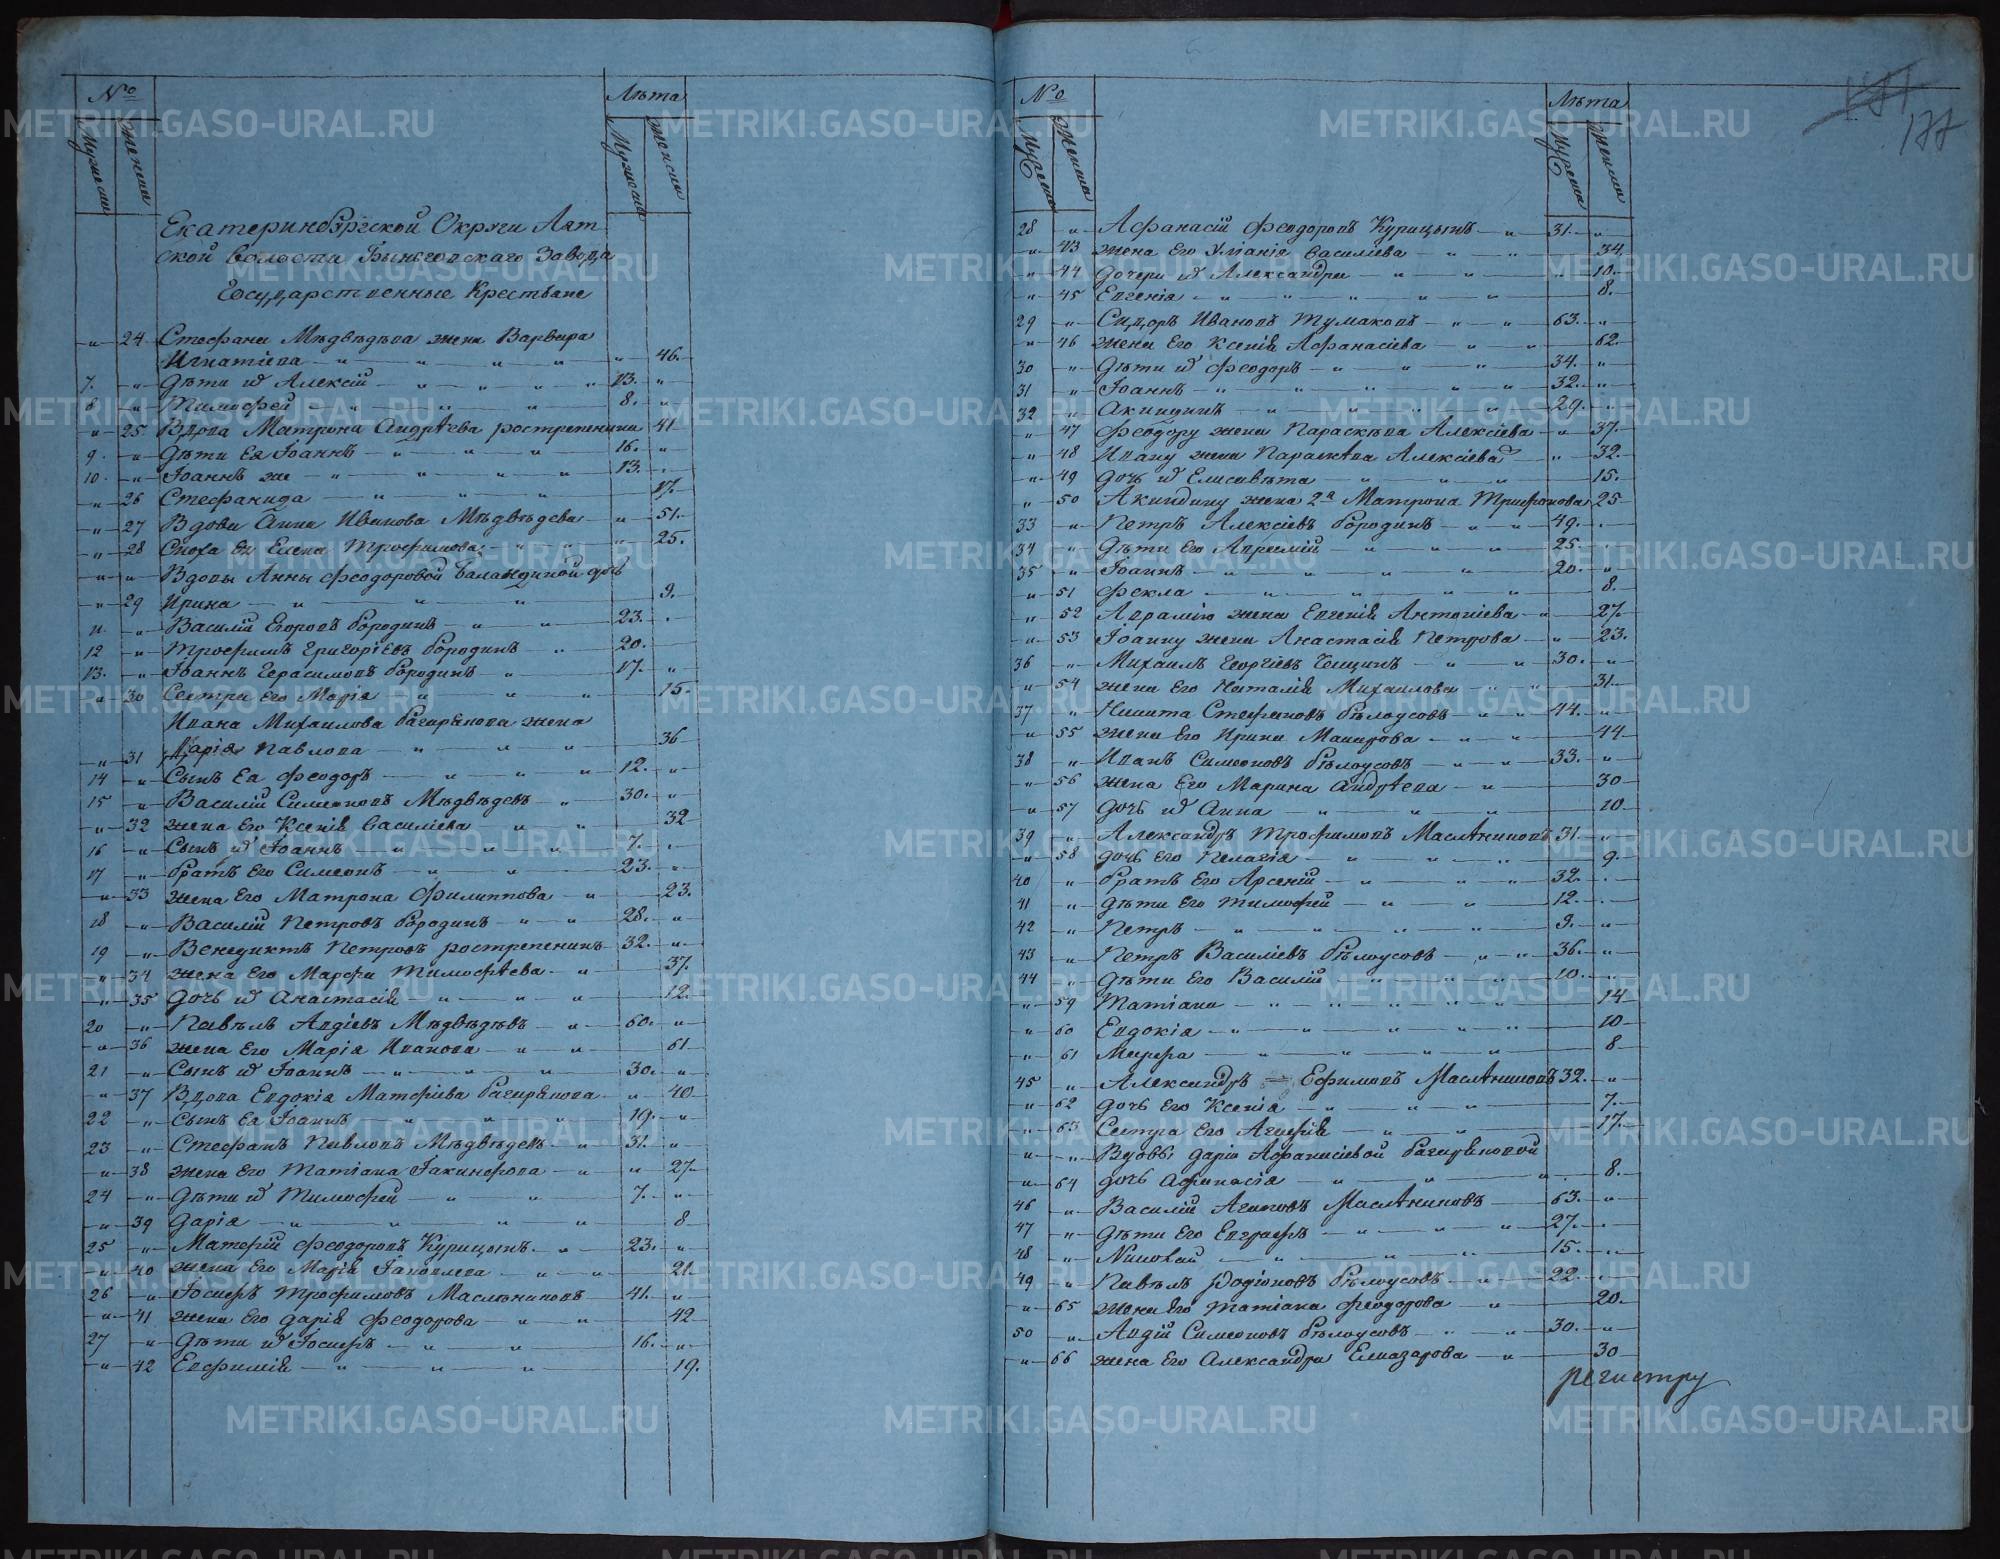 № Лѣта
Мужеска Женска Мужеска Женска
Екатеринбургской Округи Аят-
ской Волости Быньговскаго Завода
Государственные Крестьяне
" 24 Стефана Мѣдвѣдева жена Варвара
Игнатіева " " " " 46.
7. " Дѣти их Алексій " " " " 13. "
8 " Тимофей " " " 8. "
" 25 Вдова Матрона Андрѣева ростренина 41
9. " Дѣти Ея Іоаннъ " " " 16. "
10. " Іоаннъ же " " " " 13. "
" 26 Стефанида " " " 17.
" 27 Вдова Анна Иванова Мѣдвѣдева " 51.
" 28 Сноха ея Елена Трофимова " " " 25.
" " Вдовы Анны Феодоровой Баландиной дочь
" 29 Ирина " " " 9.
11. " Василій Егоровъ Бородинъ " " 23. "
12 " Трофимъ Григоріевъ Бородинъ " 20.
13. " Іоаннъ Герасимовъ Бородинъ " 17. "
" 30 Сестра Его Марія " " " 15.
Ивана Михаилова Багирякова жена
" 31 Марія Павлова " " " 36
14 " Сынъ Ея Феодоръ " " " 12. "
15 " Василій Симеоновъ Мѣдвѣдевъ " 30. "
" 32 жена Его Ксенія Василіева " " 32
16 " Сынъ их Іоаннъ " " " 7. "
17 " Братъ Его Симеонъ " " 23. "
" 33 жена Его Матрона Филиппова " 23.
18 " Василій Петровъ Бородинъ " " 28. "
19 " Венедиктъ Петровъ ростренинъ 32. "
" 34 жена Его Марфа Тимофѣева " 37.
" 35 дочь их Анастасія " " " 12.
20 " Павелъ Авдіевъ Мѣдвѣдевъ " 60. "
" 36 жена Его Марія Иванова " " 61
21 " Сынъ их Іоаннъ " " " 30. "
" 37 Вдова Евдокія Матфіева Багирякова " 40
22 " сынъ Ея Іоаннъ " " " 19. "
23 " Стефанъ Павловъ Мѣдвѣдевъ " 31. "
" 38 жена Его Татіана Іакинфова " " 27
24 " Дѣти их Тимофей " " 7. "
" 39 Дарія " " " " 8
25 " Матфій Феодоровъ Курицынъ " 23. "
" 40 жена Его Марія Іаковлева " " 21.
26 " Іосифъ Трофимовъ Маслениковъ 41. "
" 41 жена Его Дарія Феодорова " " 42
27 " Дѣти их Іосифъ " " 16. "
" 42 Евфимія " " " 19.
177
№ Лѣта
Мужеска Женска Мужеска Женска
28 " Афанасій Феодоровъ Курицынъ " 31. "
" 43 жена Его Уліанія Василіева " " 34.
" 44 дочери их Александра " " " 10.
" 45 Евгенія " " " " " 8.
29 " Сидоръ Ивановъ Тумаковъ " " 63. "
" 46 жена Его Ксенія Афанасіева " " 62.
30 " Дѣти их Феодоръ " " " 34. "
31 " Іоаннъ " " " " " 32. "
32 " Акиндинъ " " " " 29. "
" 47 Феодору жена Параскева Алексіева " 37.
" 48 Ивану жена Параскева Алексіева " 32.
" 49 дочь их Елисавета " " " 15.
" 50 Акиндину жена 2я Матрона Трифонова 25
33 " Петръ Алексіевъ Бородинъ " " 49. "
34 " Дѣти Его Аврамій " " " 25. "
35 " Іоаннъ " " " " 20. "
" 51 Фекла " " " " 8.
" 52 Аврамію жена Евгенія Антоніева " 27.
" 53 Іоанну жена Анастасія Петрова " 23.
36 " Михаилъ Георгіевъ " " 30. "
" 54 жена Его Наталія Михаилова " " 31.
37 " Никита Стефановъ Бѣлоусовъ " " 44. "
" 55 жена Его Ирина Макарова " " " 44
38 " Иванъ Симеоновъ Бѣлоусовъ " " 33. "
" 56 жена Его Марина Андрѣева " " 30
" 57 дочь их Анна " " " 10.
39 " Александръ Трофимовъ Маслениковъ 31. "
" 58 дочь Его Пелагія " " " 9.
40 " Братъ Его Арсеній " " " 32. "
41 " Дѣти Его Тимофей " " " 12. "
42 " Петръ " " " " 9. "
43 " Петръ Василіевъ Бѣлоусовъ " " 36. "
44 " Дѣти Его Василій " " " 10. "
" 59 Татіана " " " " " 14
" 60 Евдокія " " " " " 10
" 61 Марфа " " " " 8
45 " Александръ Ефимовъ Маслениковъ 32. "
" 62 дочь Его Ксенія " " " 7.
" 63 Сестра Его Агафія " " " 17.
" " Вдовы Даріи Афанасіевой Багиряковой
" 64 дочь Афанасія " " " 8.
46 " Василій Агаповъ Маслениковъ 63. "
47 " Дѣти Его Евграфъ " " " 27. "
48 " Николай " " " 15. "
49 " Павелъ Родіоновъ Бѣлоусовъ " 22. "
" 65 жена Его Татіана Феодорова " 20.
50 " Авдій Симеоновъ Бѣлоусовъ " " 30. "
" 66 жена Его Александра Елиазарова " 30
регистру
METRIKI.GASO-URAL.RU